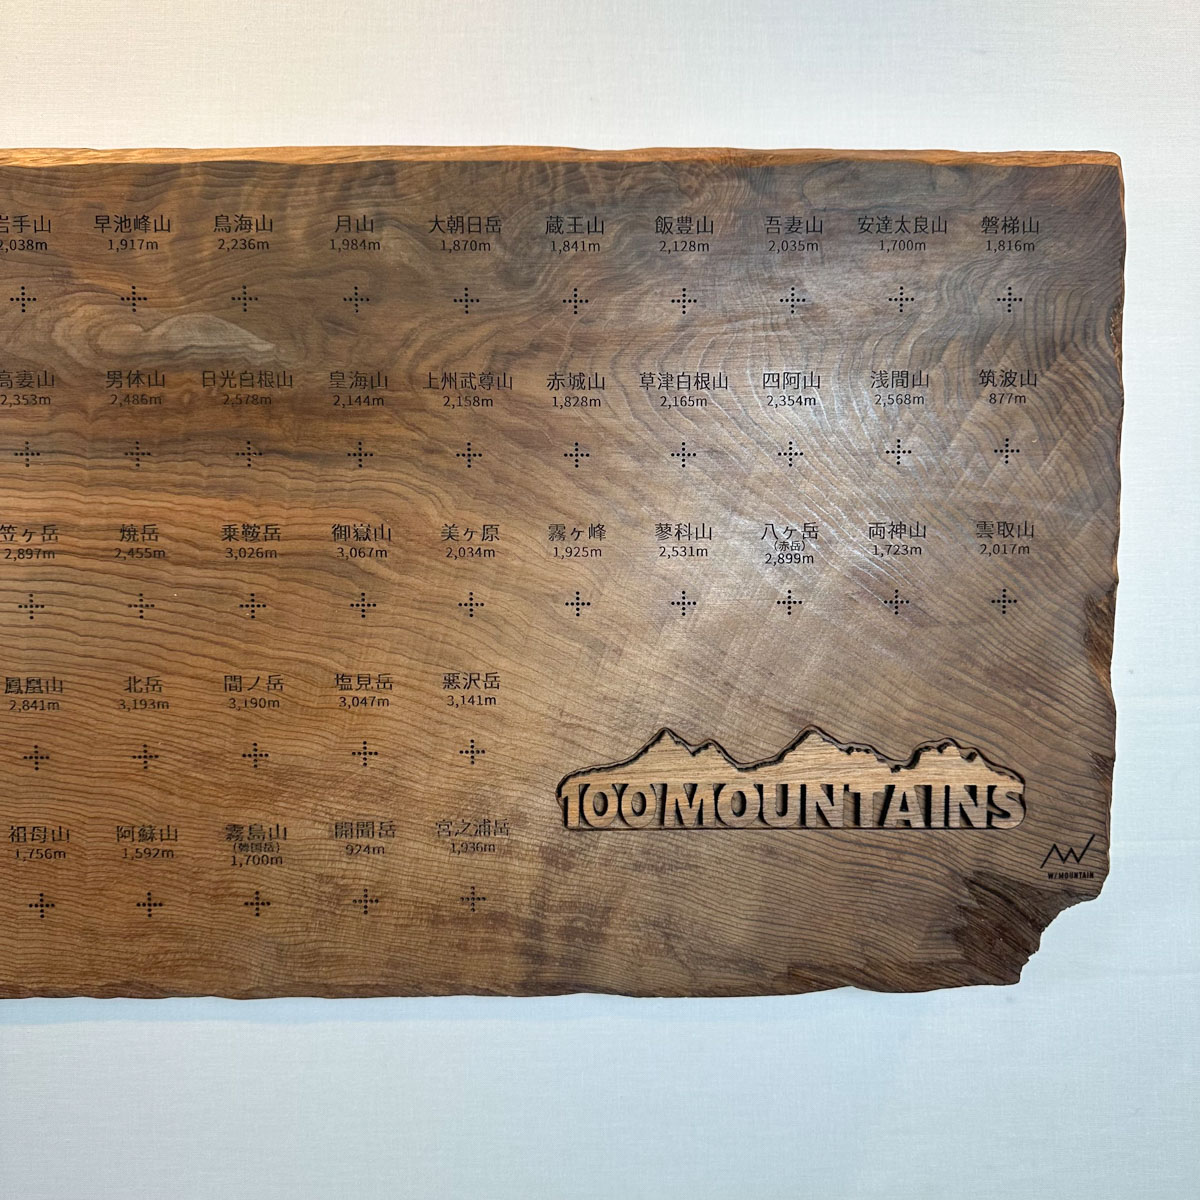 岩手山 早池峰山 鳥海山 月山 大朝日岳 蔵王山 飯豊山 吾妻山 安達太良山 磐梯山
2,038m 1,917m 2,236m 1,984m 1,870m 1,841m 2,128m 2,035m 1,700m 1,816m
高妻山 男体山 日光白根山 皇海山 上州武尊山 赤城山 草津白根山 四阿山 浅間山 筑波山
2,353m 2,486m 2,578m 2,144m 2,158m 1,828m 2,165m 2,354m 2,568m 877m
笠ヶ岳 焼岳 乗鞍岳 御嶽山 美ヶ原 霧ヶ峰 蓼科山 八ヶ岳 両神山 雲取山
(赤岳)
2,897m 2,455m 3,026m 3,067m 2,034m 1,925m 2,531m 2,899m 1,723m 2,017m
鳳凰山 北岳 間ノ岳 塩見岳 悪沢岳
2,841m 3,193m 3,190m 3,047m 3,141m
100MOUNTAINS
祖母山 阿蘇山 霧島山 開聞岳 宮之浦岳
(韓国岳)
1,756m 1,592m 1,700m 924m 1,936m
W/MOUNTAIN